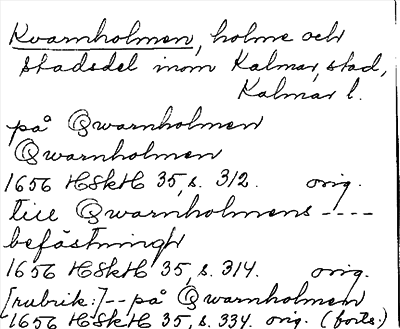 Kvarnholmen, holme och
stadsdel inom Kalmar stad,
Kalmar l.
på Qwarnholmen
Qwarnholmen
1656 HSkH 35, s. 312. orig.
till Qwarnholmens ----
befästningh
1656 HSkH 35, s. 314. orig.
[rubrik:] -- på Qwarnholmen
1656 HSkH 35, s. 334. orig. (forts.)